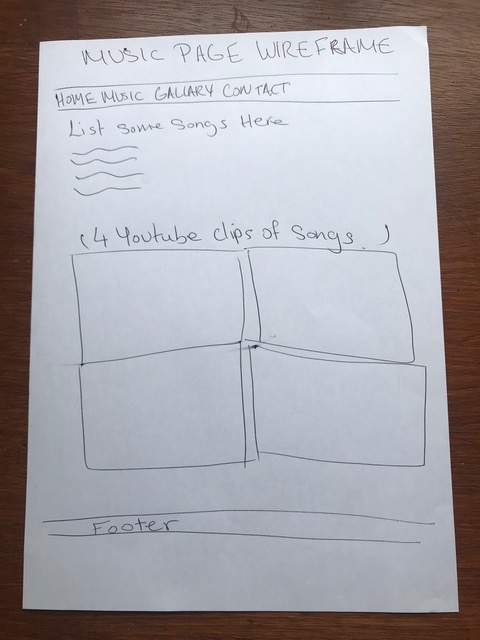 MUSIC PAGE WIREFRAME
HOME MUSIC GALLARY CONTACT
List some songs Here
(4 Youtube clips of Songs. )
Footer